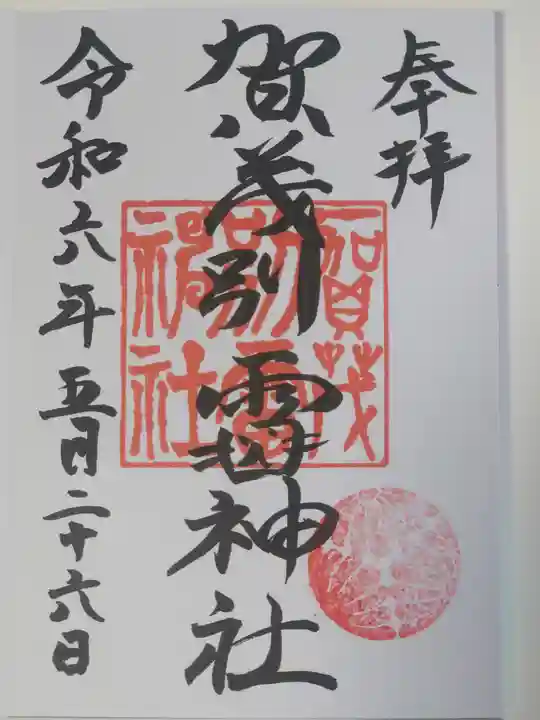 奉拝
賀茂別雷神社
令和六年五月二十六日
賀茂
別雷
神社